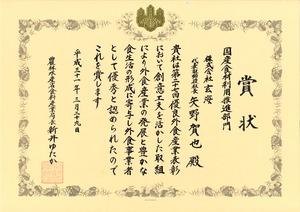 賞状
国産食材利用推進部門
株式会社 玄海
代表取締役社長 矢野賀也 殿
貴社は第二十四回優良外食産業表彰
において創意工夫を活かした取組
により外食産業の発展と豊かな
食生活の形成に寄与し外食事業者
として優秀と認められたので
これを賞します
平成二十八年三月二十九日
農林水産省食料産業局長 新井ゆたか